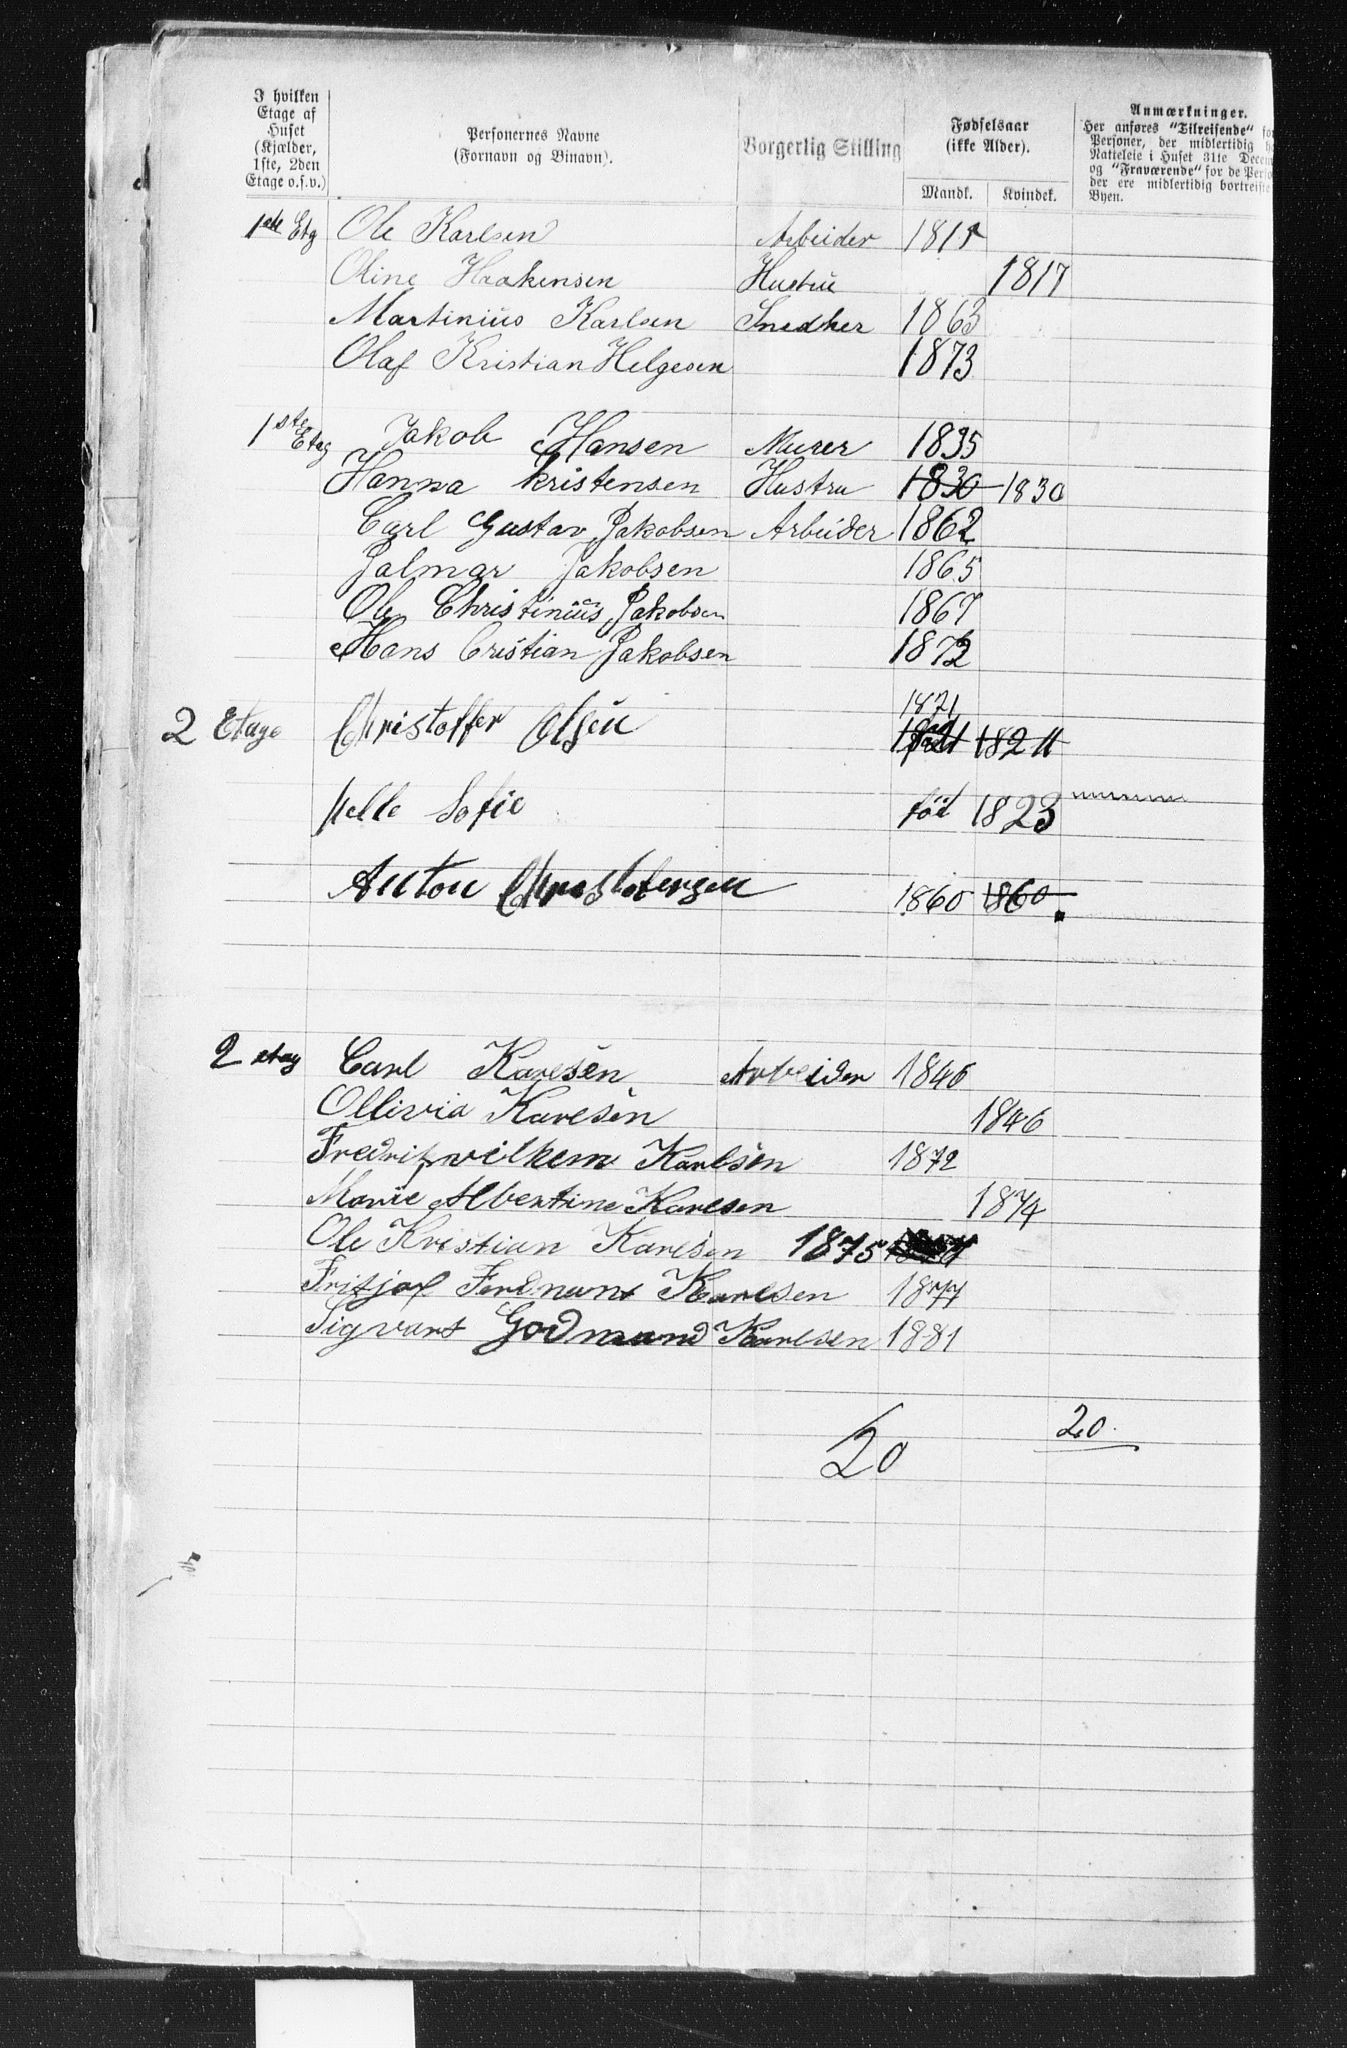 I hvilken Etage af Huset (Kjælder, 1ste, 2den Etage o.s.v.)
Personernes Navne (Fornavn og Binavn).
Borgerlig Stilling
Fødselsaar (ikke Alder).
Mandk. Kvindek.
Anmærkninger.
Her anføres "Tilreisende" for
Personer, der midlertidig
Natteleie i Huset 31te Decem
og "Fraværende" for de Perso
der ere midlertidig bortreiste
Byen.
1ste Etg Ole Karlsen Arbeider
Oline Haakensen Hustru 1817
Martinius Karlsen Snedker 1863
Olaf Kristian Helgesen 1873
1ste Etag Jakob Hansen Murer 1835
Hanna Kristensen Hustru 1830 1830
Carl Gustav Jakobsen Arbeider 1862
Jalmar Jakobsen 1865
Ole Christinius Jakobsen 1867
Hans Cristian Jakobsen 1872
1821
2 Etage Christoffer Olsen
Sofie föd 1823
Anton 1860 1860
2 etag Carl Karlsen Arbeider 1846
Ollivia Karlsen 1846
Fredrik vilhem Karlsen 1872
Marie Albertine Karlsen 1874
Ole Kristian Karlsen 1875
Fritjof Ferdnand Karlsen 1877
Sigvart Godmand Karlsen 1881
20.
20